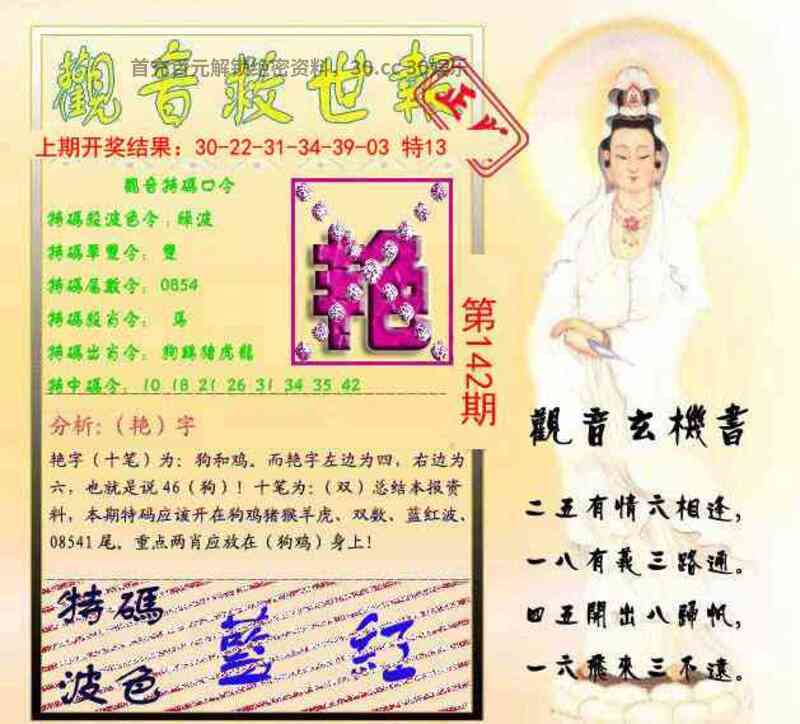 觀音救世報
首充百元解锁绝密资料，30.cc 30娱乐
正
上期开奖结果：30-22-31-34-39-03 特13
觀音特碼口令
特碼殺波色令：綠波
特碼單雙令： 雙
特碼尾數令：0854
特碼殺肖令： 馬
特碼出肖令：狗鷄猪虎龍
特中碼令：10 18 21 26 31 34 35 42
艳
第142期
分析：（艳）字
艳字（十笔）为：狗和鸡。而艳字左边为四，右边为
六，也就是说46（狗）！十笔为：（双）总结本报资
料，本期特码应该开在狗鸡猪猴羊虎、双数、蓝红波、
08541尾。重点两肖应放在（狗鸡）身上！
特碼
波色
藍 紅
觀音玄機書
二五有情六相逢，
一八有義三路通。
四五開出八歸帆，
一六飛來三不遠。